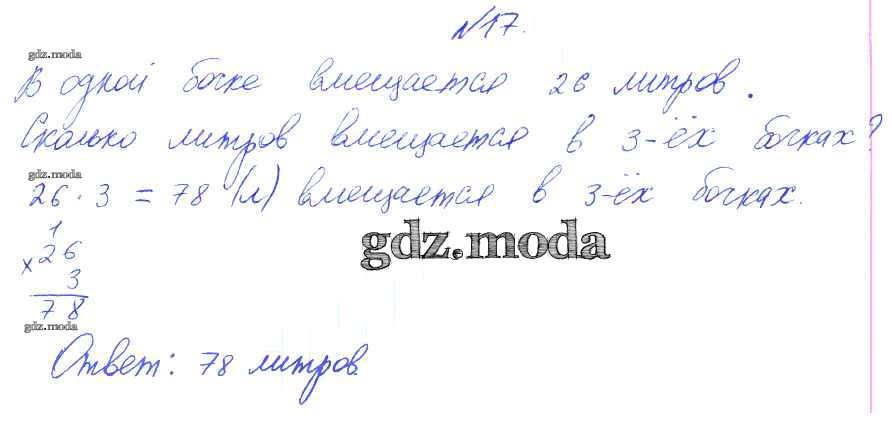 №17.
gdz.moda
В одной бочке вмещается 26 литров.
Сколько литров вмещается в 3-ёх бочках?
gdz.moda
26 · 3 = 78 (л) вмещается в 3-ёх бочках.
gdz.moda
1
× 26
3
78
gdz.moda
Ответ: 78 литров.